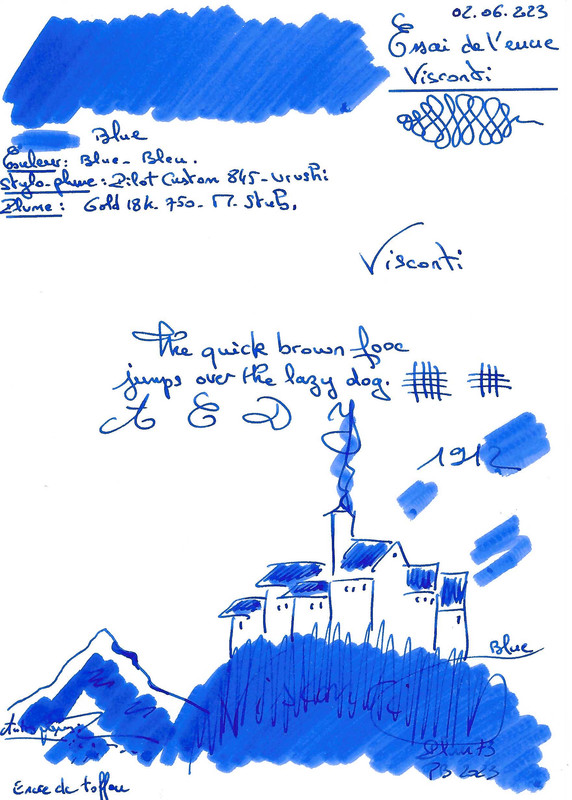 02.06.223
Essai de l'encre
Visconti
Blue
Couleur: Blue - Bleu.
Stylo-plume: Pilot Custom 845 - Urushi
Plume: Gold 18k. 750 - M. Stub.
Visconti
The quick brown foxe
jumps over the lazy dog.
A E D Y
1912
Blue
PB 2023
Encre de